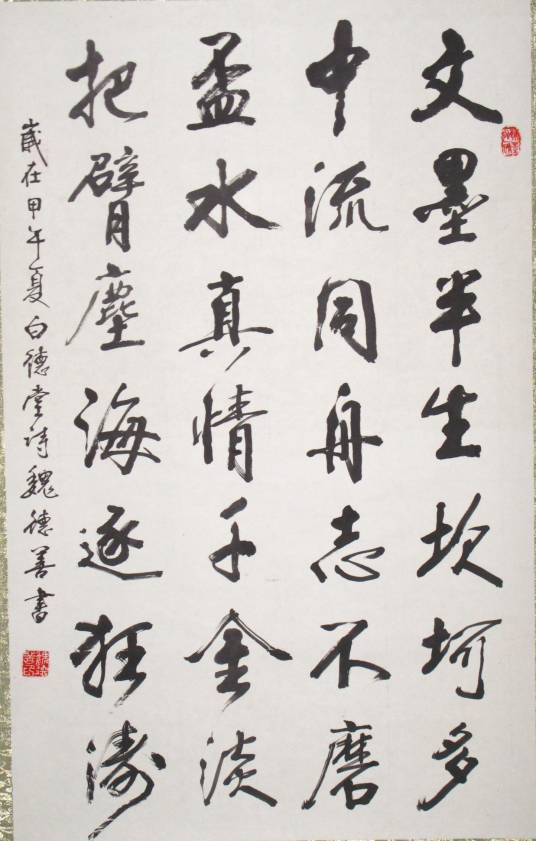 文墨半生坎坷多
中流同舟志不磨
盃水真情千金淡
把臂塵海逐狂濤
歲在甲午夏白德堂诗魏德善書